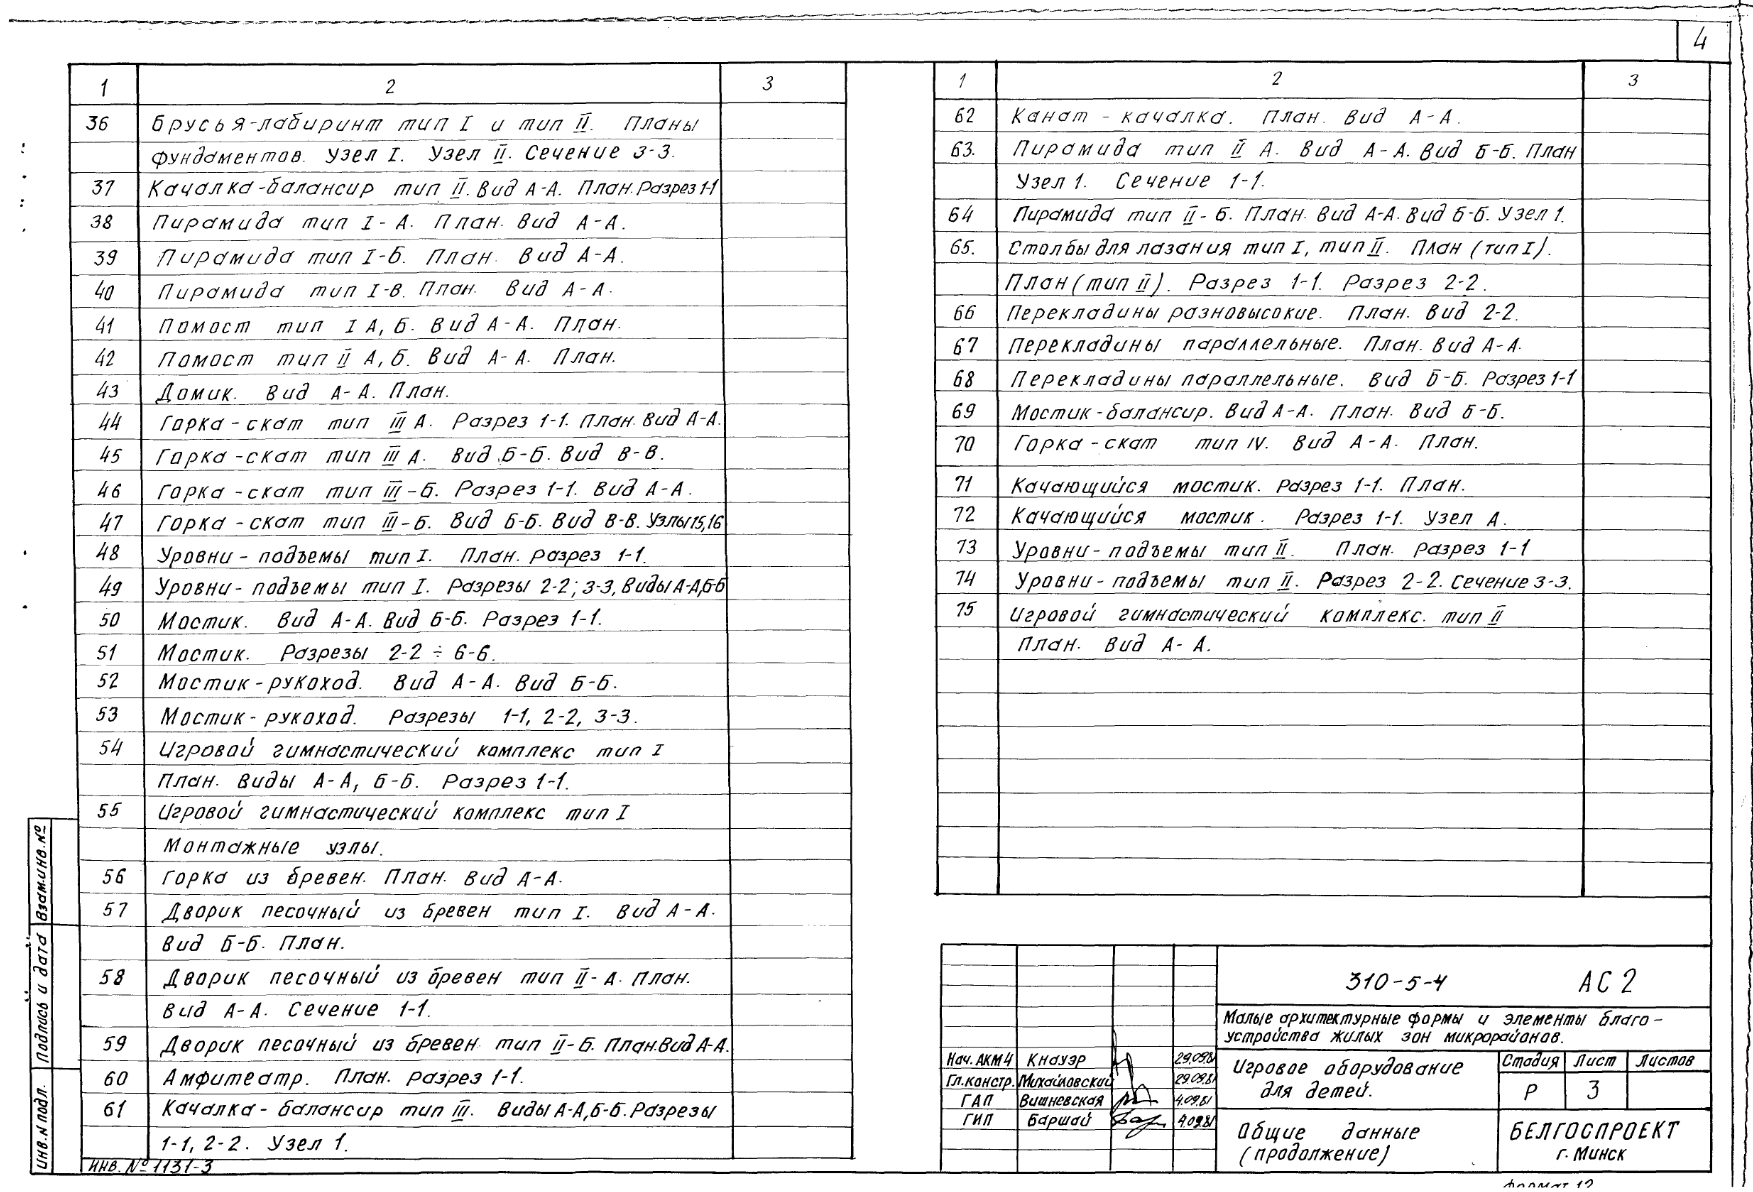 4
1 2 3
36 Брусья-лабиринт тип I и тип II. Планы
фундаментов. Узел I. Узел II. Сечение 3-3.
37 Качалка-балансир тип II. Вид А-А. План. Разрез 1-1
38 Пирамида тип I-А. План. Вид А-А.
39 Пирамида тип I-Б. План. Вид А-А.
40 Пирамида тип I-В. План. Вид А-А.
41 Помост тип I А, Б. Вид А-А. План.
42 Помост тип II А, Б. Вид А-А. План.
43 Домик. Вид А-А. План.
44 Горка-скат тип III А. Разрез 1-1. План. Вид А-А.
45 Горка-скат тип III А. Вид Б-Б. Вид В-В.
46 Горка-скат тип III-Б. Разрез 1-1. Вид А-А.
47 Горка-скат тип III-Б. Вид Б-Б. Вид В-В. Узлы 15,16
48 Уровни-подъемы тип I. План. Разрез 1-1.
49 Уровни-подъемы тип I. Разрезы 2-2; 3-3, Виды А-А, Б-Б
50 Мостик. Вид А-А. Вид Б-Б. Разрез 1-1.
51 Мостик. Разрезы 2-2 ÷ 6-6.
52 Мостик-рукоход. Вид А-А. Вид Б-Б.
53 Мостик-рукоход. Разрезы 1-1, 2-2, 3-3.
54 Игровой гимнастический комплекс тип I
План. Виды А-А, Б-Б. Разрез 1-1.
55 Игровой гимнастический комплекс тип I
Монтажные узлы.
56 Горка из бревен. План. Вид А-А.
57 Дворик песочный из бревен тип I. Вид А-А.
Вид Б-Б. План.
58 Дворик песочный из бревен тип II-А. План.
Вид А-А. Сечение 1-1.
59 Дворик песочный из бревен тип II-Б. План. Вид А-А.
60 Амфитеатр. План. Разрез 1-1.
61 Качалка-балансир тип III. Виды А-А, Б-Б. Разрезы
1-1, 2-2. Узел 1.
1 2 3
62 Канат-качалка. План. Вид А-А.
63. Пирамида тип II А. Вид А-А. Вид Б-Б. План
Узел 1. Сечение 1-1.
64 Пирамида тип II-Б. План. Вид А-А. Вид Б-Б. Узел 1.
65. Столбы для лазания тип I, тип II. План (тип I).
План (тип II). Разрез 1-1. Разрез 2-2.
66 Перекладины разновысокие. План. Вид 2-2.
67 Перекладины параллельные. План. Вид А-А.
68 Перекладины параллельные. Вид Б-Б. Разрез 1-1
69 Мостик-балансир. Вид А-А. План. Вид Б-Б.
70 Горка-скат тип IV. Вид А-А. План.
71 Качающийся мостик. Разрез 1-1. План.
72 Качающийся мостик. Разрез 1-1. Узел А.
73 Уровни-подъемы тип II. План. Разрез 1-1
74 Уровни-подъемы тип II. Разрез 2-2. Сечение 3-3.
75 Игровой гимнастический комплекс. тип II
План. Вид А-А.
Взам.инв.№
Подпись и дата
Инв.№ подл.
Инв. № 1131-3
310-5-4 АС 2
Малые архитектурные формы и элементы благо-
устройства жилых зон микрорайонов.
Нач. АКМ4 Кнауэр 29.09.81
Гл.констр. Михайловский 29.09.81
ГАП Вишневская 4.09.81
ГИП Баршай 4.09.81
Игровое оборудование
для детей.
Стадия Лист Листов
Р 3
Общие данные
(продолжение)
БЕЛГОСПРОЕКТ
г. Минск
Формат 12